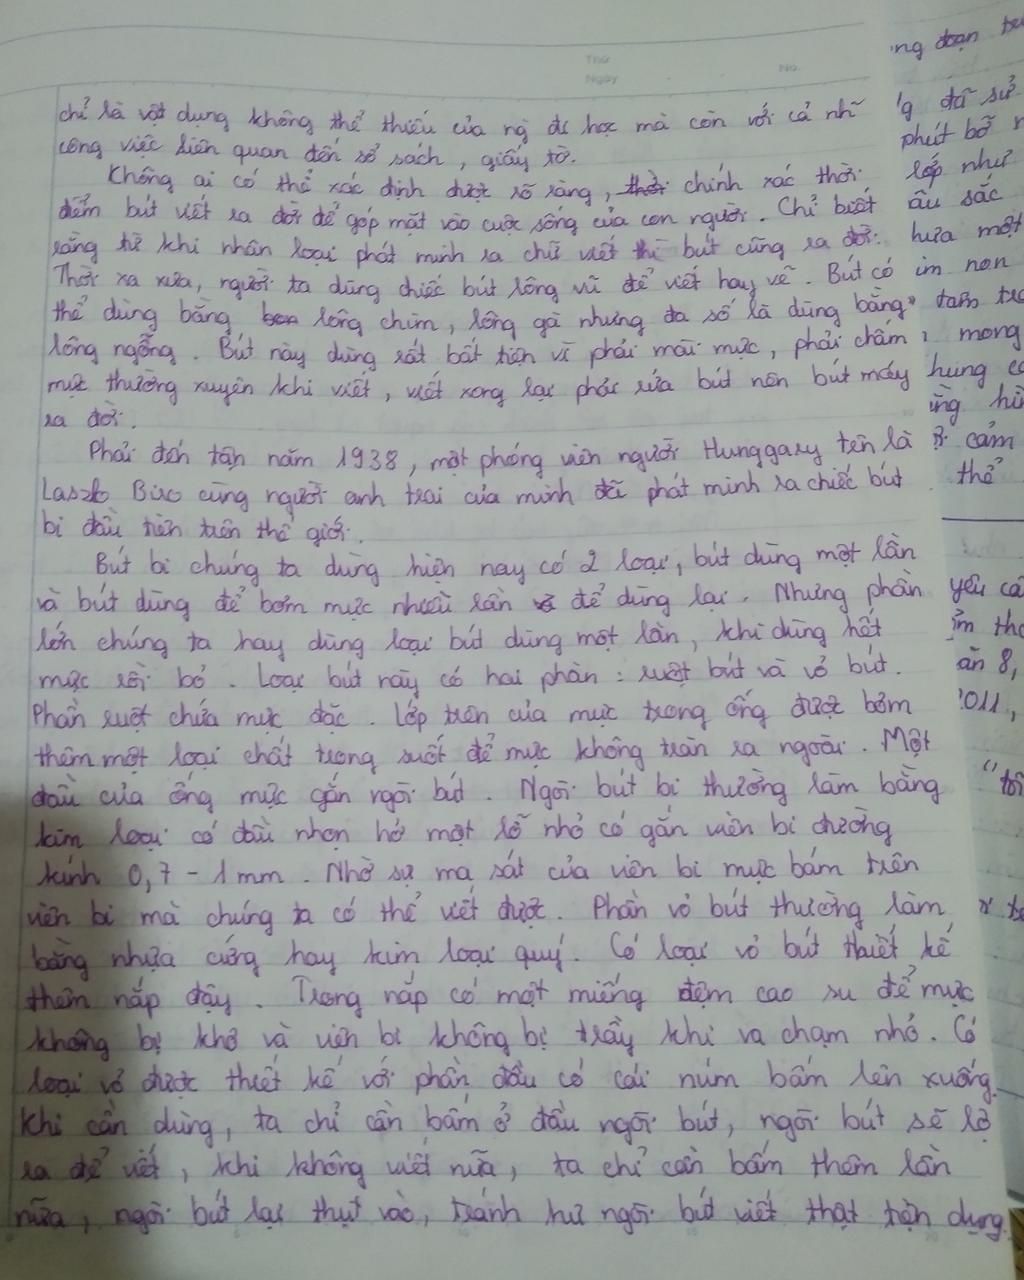 Thứ
Ngày
No.
chỉ là vật dụng không thể thiếu của ng đi học mà còn với cả nh
công việc liên quan đến sổ sách, giấy tờ.
Không ai có thể xác định được rõ ràng, chính xác thời
điểm bút viết ra đời để góp mặt vào cuộc sống của con người. Chỉ biết
rằng từ khi nhân loại phát minh ra chữ viết thì bút cũng ra đời.
Thời xa xưa, người ta dùng chiếc bút lông vũ để viết hay vẽ. Bút có
thể dùng bằng lông chim, lông gà nhưng đa số là dùng bằng
lông ngỗng. Bút này dùng rất bất tiện vì phải mài mực, phải chấm
mực thường xuyên khi viết, viết xong lại phải rửa bút nên bút máy
ra đời.
Phải đến tận năm 1938, một phóng viên người Hunggary tên là
Laszlo Biro cùng người anh trai của mình đã phát minh ra chiếc bút
bi đầu tiên trên thế giới.
Bút bi chúng ta dùng hiện nay có 2 loại, bút dùng một lần
và bút dùng để bơm mực nhiều lần để dùng lại. Nhưng phần
lớn chúng ta hay dùng loại bút dùng một lần, khi dùng hết
mực rồi bỏ. Loại bút này có hai phần: ruột bút và vỏ bút.
Phần ruột chứa mực đặc. Lớp trên của mực trong ống được bơm
thêm một loại chất trong suốt để mực không tràn ra ngoài. Một
đầu của ống mực gắn ngòi bút. Ngòi bút bi thường làm bằng
kim loại có đầu nhọn hở một lỗ nhỏ có gắn viên bi đường
kính 0,7 - 1mm. Nhờ sự ma sát của viên bi mực bám trên
viên bi mà chúng ta có thể viết được. Phần vỏ bút thường làm
bằng nhựa cứng hay kim loại quý. Có loại vỏ bút thiết kế
thêm nắp đậy. Trong nắp có một miếng đệm cao su để mực
không bị khô và viên bi không bị trầy khi va chạm nhỏ. Có
loại vỏ được thiết kế với phần đầu có cái núm bấm lên xuống.
Khi cần dùng, ta chỉ cần bấm ở đầu ngòi bút, ngòi bút sẽ lộ
ra để viết, khi không viết nữa, ta chỉ cần bấm thêm lần
nữa, ngòi bút lại thụt vào, tránh hư ngòi bút viết thật tiện dụng.
ng đoạn
đã sử
phút bỡ
lớp như
âu sắc
một
non
mong
hung
cảm
thể
yêu cầ
8,
2011,
"tôi